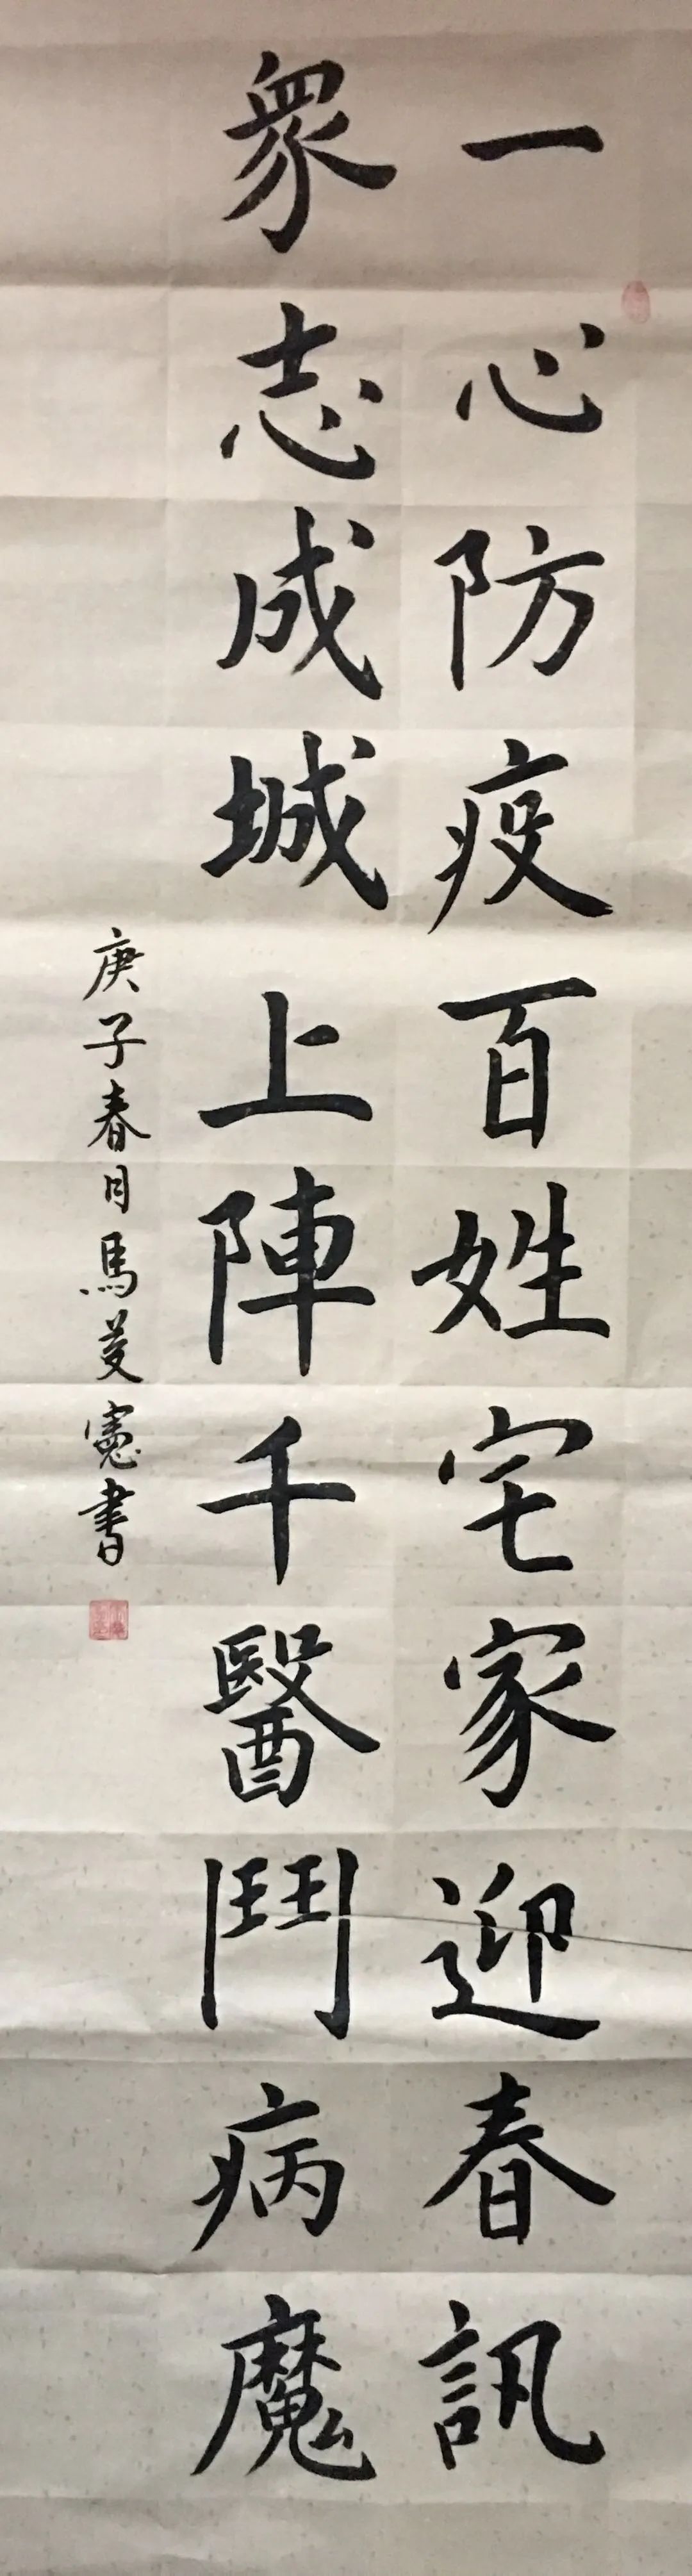 一心防疫百姓宅家迎春訊
衆志成城上陣千醫鬥病魔
庚子春月馬芰憲書